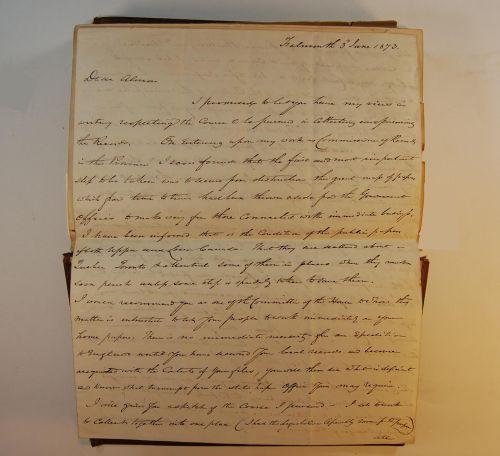 Falmouth 3 June 1873.
Dear Almon
I promised to let you have my views in
writing respecting the Course to be pursued in Collecting and preserving
the Records. On entering upon my work as Commissioner of Records
in this Province I soon found that the first and most important
step to be taken was to secure from destruction the great mass of papers
which from time to time had been thrown aside from the Government
Offices to make way for those Connected with immediate business.
I have been informed that is the Condition of the public papers
of both Upper and Lower Canada. That they are scattered about in
Quebec Toronto & Montreal some of them in places where they must
soon perish unless some step is speedily taken to save them.
I would recommend you as one of the Committee of the House to whom this
matter is entrusted to set your people to work immediately on your
home papers. There is no immediate necessity for an expedition
to England until you have secured your local records and become
acquainted with the Contents of your files, you will then see what is deficient
and know what transcripts from the State paper Office you may require.
I will give you a sketch of the Course I pursued — I set to work
to Collect together into one place (I had the Legislative Assembly room